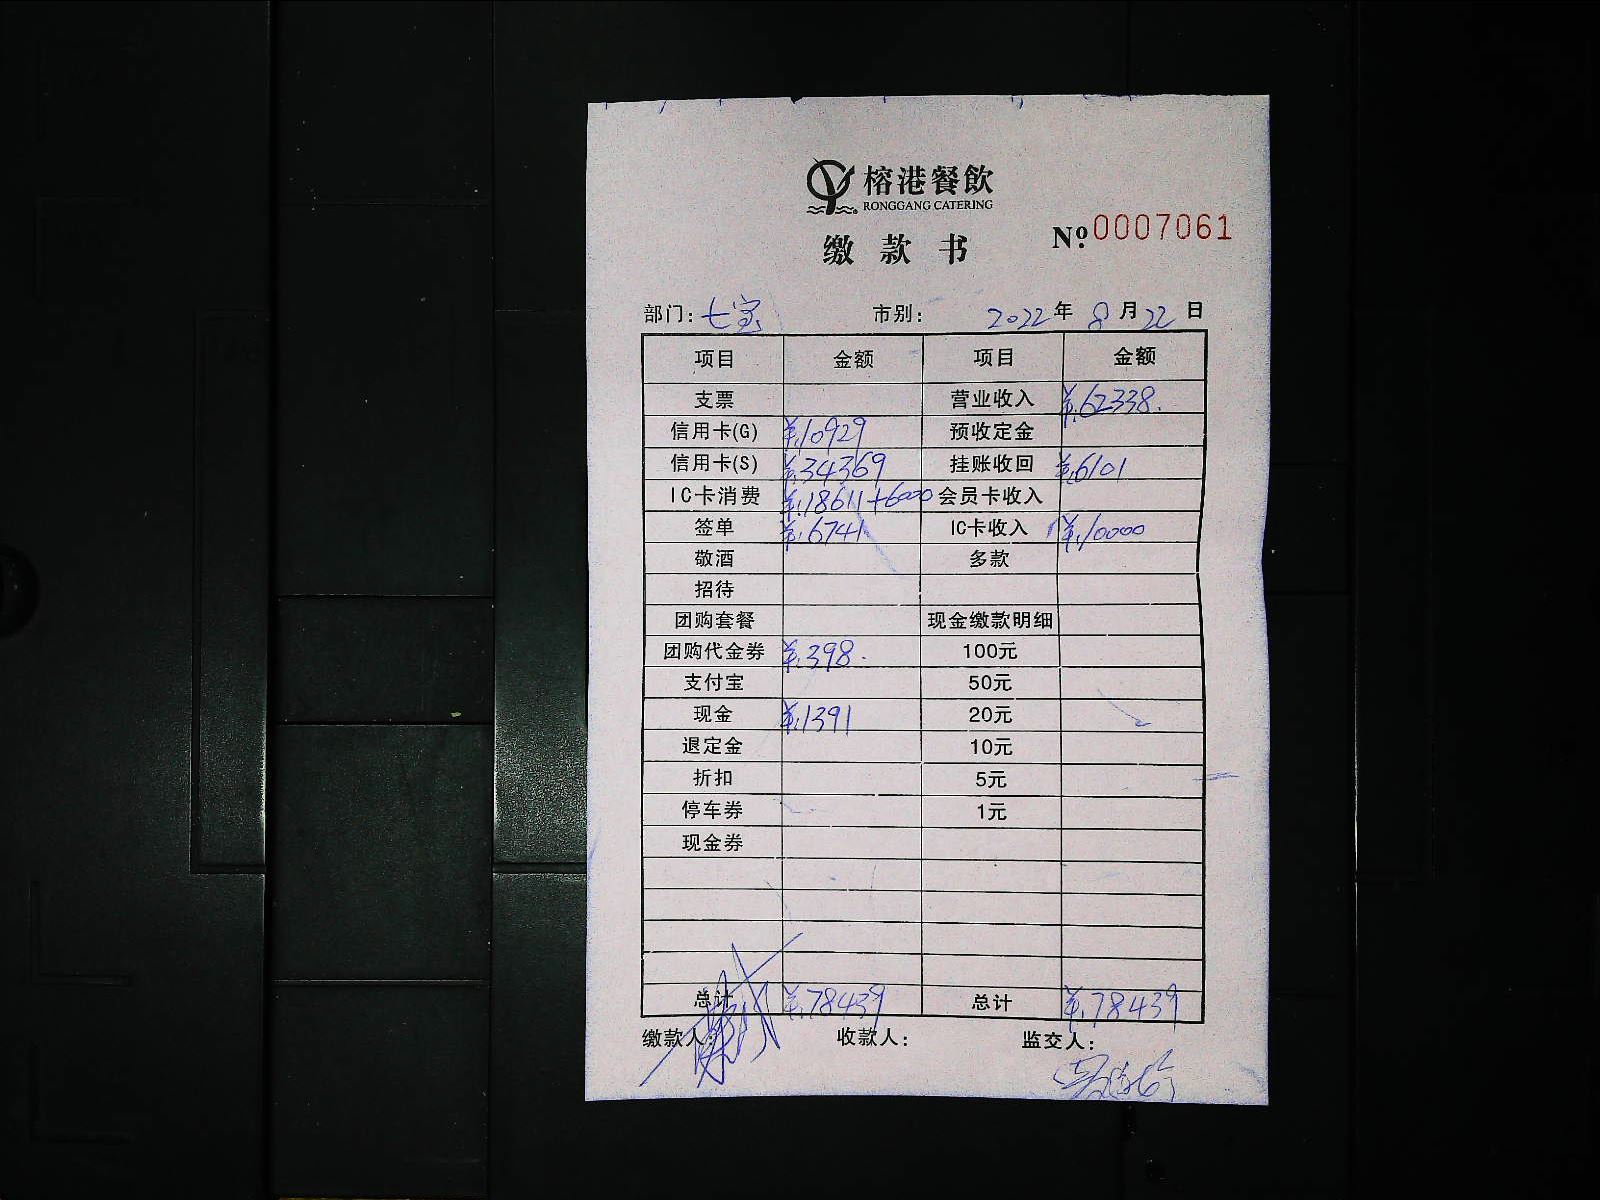 榕港餐飲
RONGGANG CATERING
缴款书
Nº 0007061
部门: 七宝 市别: 2022年 8月 22日
项目 金额 项目 金额
支票 营业收入 ¥.62338.
信用卡(G) ¥.10929 预收定金
信用卡(S) ¥.34369 挂账收回 ¥.6101
IC卡消费 ¥.18611+6000 会员卡收入
签单 ¥.6741 IC卡收入 ¥.10000
敬酒 多款
招待
团购套餐 现金缴款明细
团购代金券 ¥.398. 100元
支付宝 50元
现金 ¥.1391 20元
退定金 10元
折扣 5元
停车券 1元
现金券
总计 ¥.78439 总计 ¥.78439
缴款人: 收款人: 监交人: